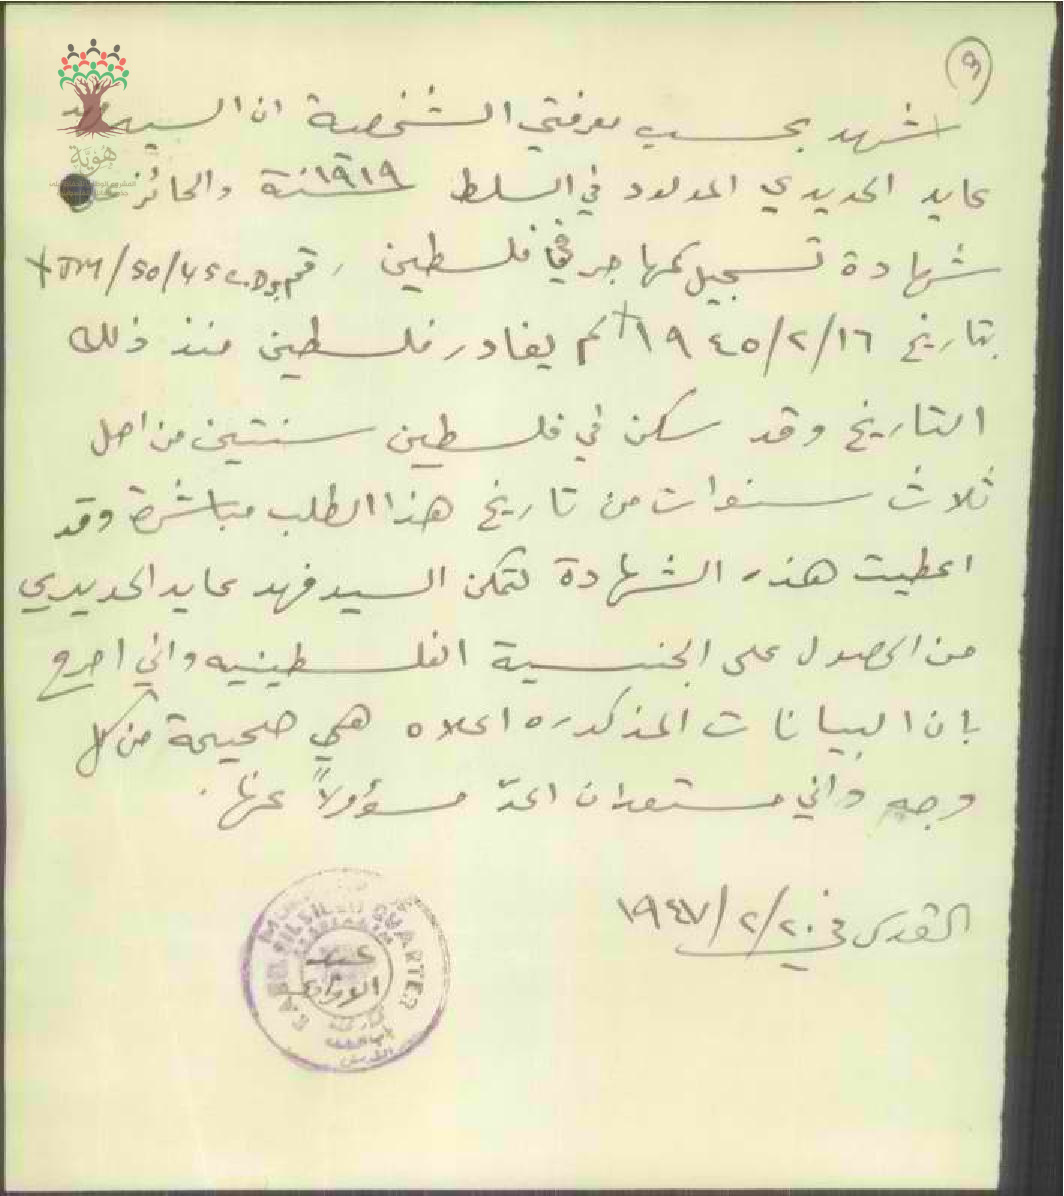 ٩
اشهد بحسب معرفتي الشخصية ان السيد فهد
عايد الحديدي المولود في السلط سنة ١٩١٩ والحائز على
شهادة تسجيل كمهاجر في فلسطين رقم
بتاريخ ١٦/٢/١٩٤٥ لم يغادر فلسطين منذ ذلك
التاريخ وقد سكن في فلسطين سنتين من اصل
ثلاث سنوات من تاريخ هذا الطلب مباشرة وقد
اعطيت هذه الشهادة لتمكن السيد فهد عايد الحديدي
من الحصول على الجنسية الفلسطينيه واني اصرح
بان البيانات المذكوره اعلاه هي صحيحة من كل
وجه واني مستعد ان اعدّ مسؤولاً عنها.
القدس في ٢٠/٢/١٩٤٧
QUARTER
هُوِيَّة